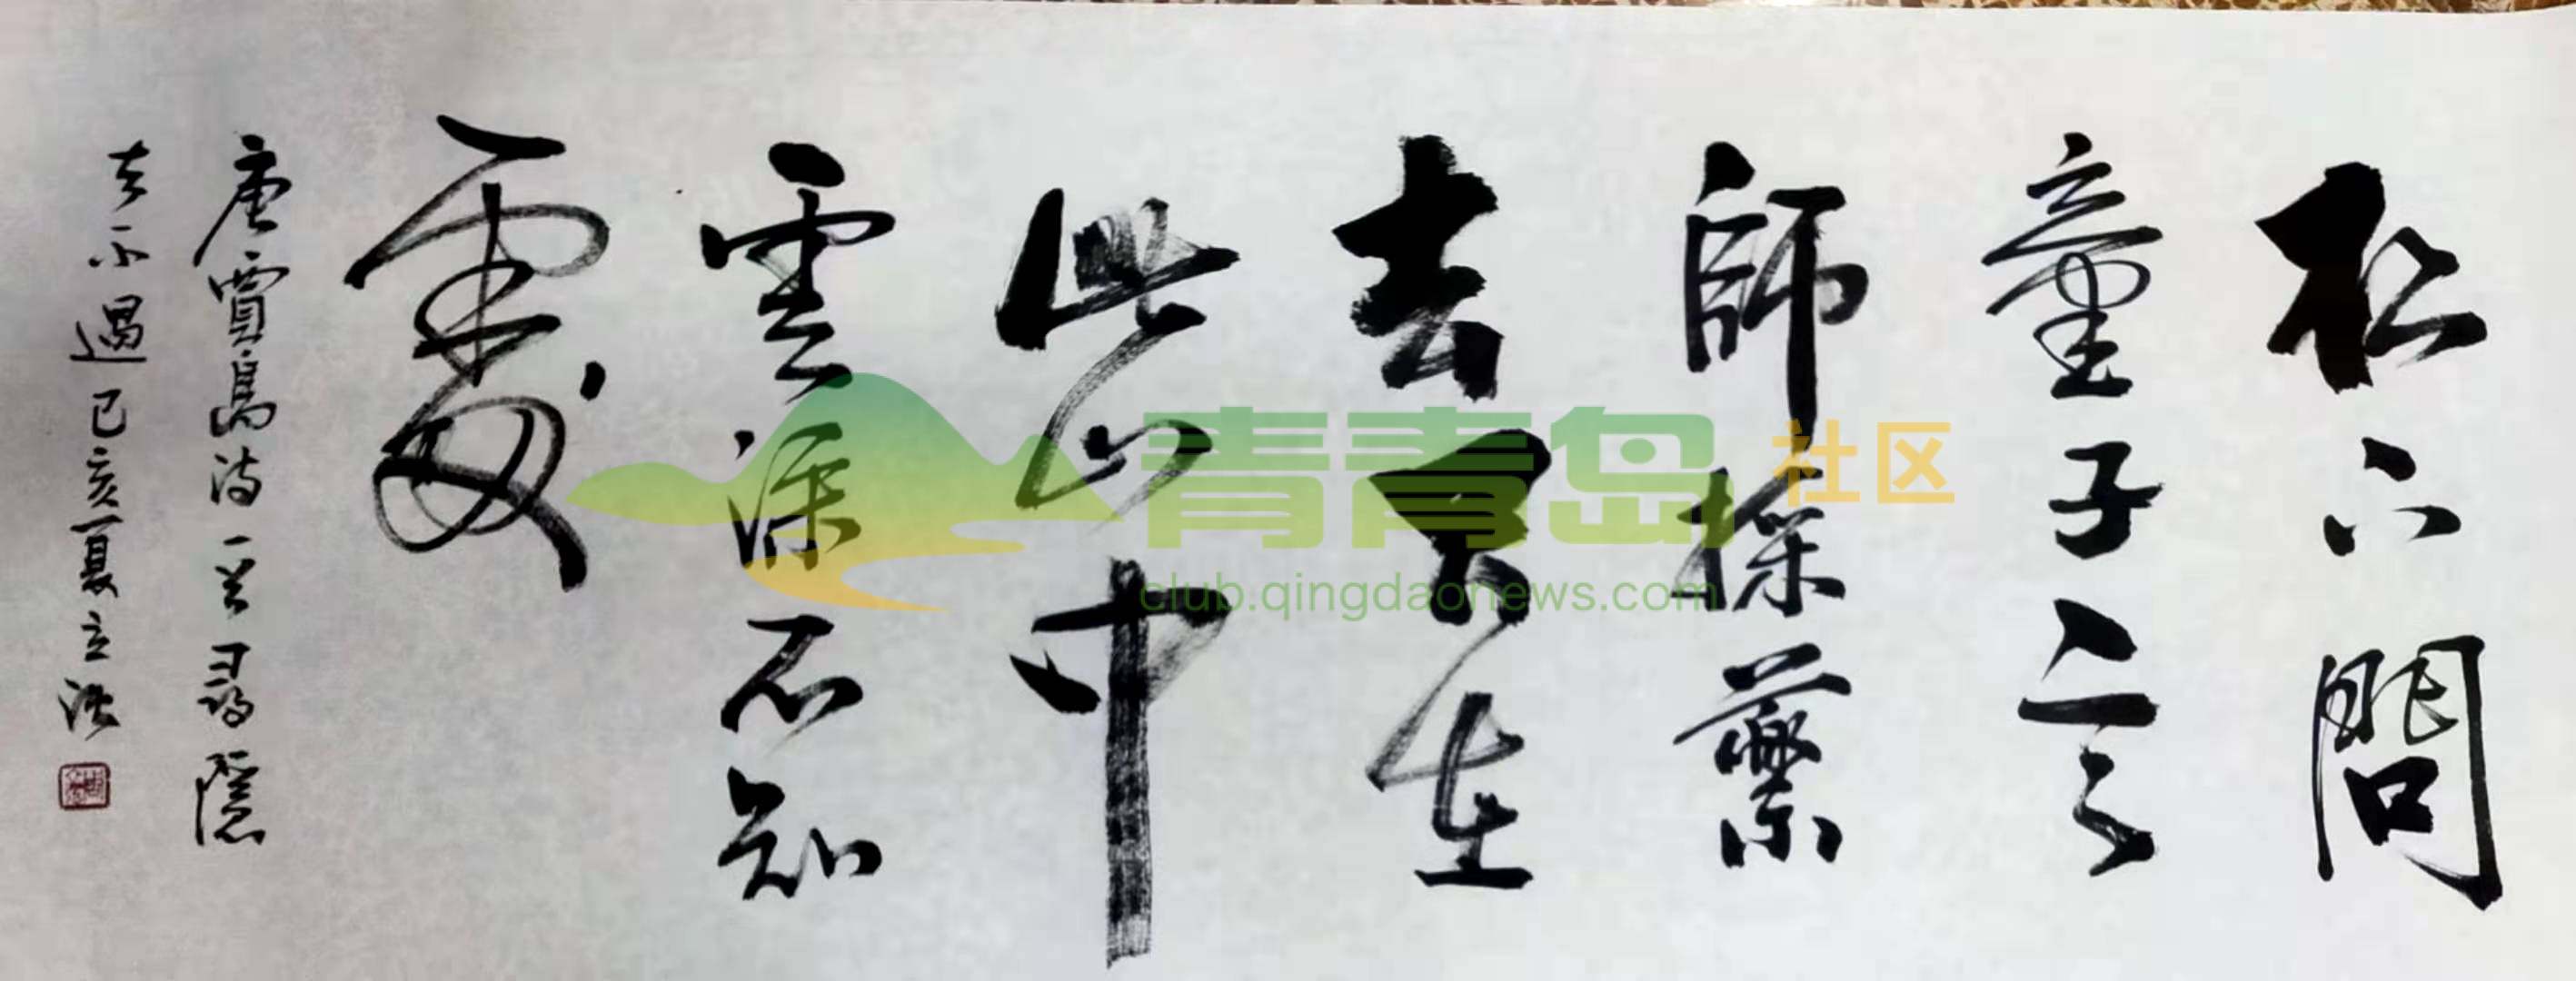 松下問
童子言
師採藥
去只在
此山中
雲深不知
處
唐賈島詩一首尋隱
者不遇己亥夏立洪
青青岛社区
club.qingdaonews.com